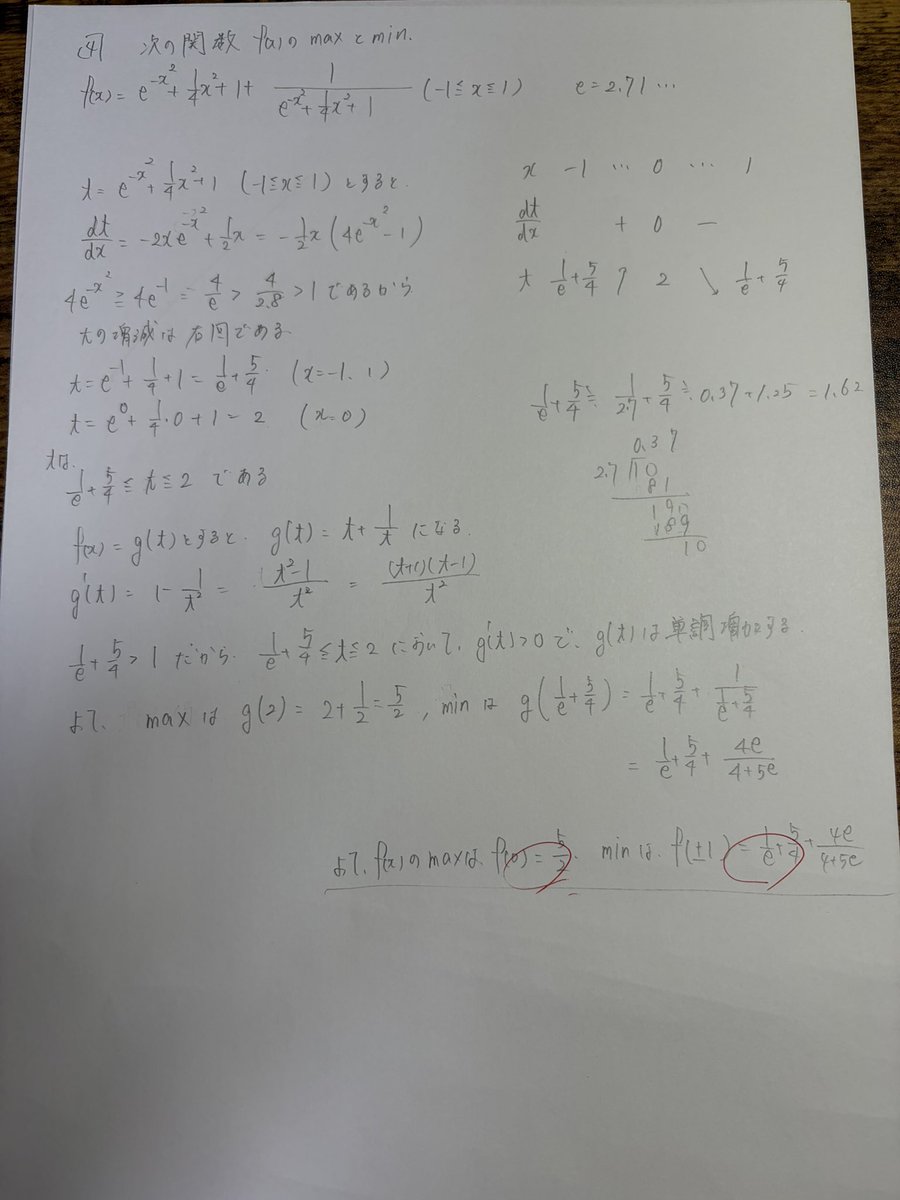 ④ 次の関数 f(x) の max と min.
f(x) = e^{-x²} + 1/4 x² + 1 + 1/(e^{-x²} + 1/4 x² + 1) (-1 ≦ x ≦ 1) e = 2.71 …
t = e^{-x²} + 1/4 x² + 1 (-1 ≦ x ≦ 1) とすると.
dt/dx = -2xe^{-x²} + 1/2 x = -1/2 x (4e^{-x²} - 1)
4e^{-x²} ≧ 4e^{-1} = 4/e > 4/2.8 > 1 であるから
tの増減は右図である.
x -1 … 0 … 1
dt/dx + 0 -
t 1/e + 5/4 ↗ 2 ↘ 1/e + 5/4
t = e^{-1} + 1/4 + 1 = 1/e + 5/4 (x = -1, 1)
t = e^0 + 1/4・0 + 1 = 2 (x = 0)
1/e + 5/4 ≒ 1/2.7 + 5/4 ≒ 0.37 + 1.25 = 1.62
0.37
2.7 10
81
190
189
10
tは、
1/e + 5/4 ≦ t ≦ 2 である
f(x) = g(t) とすると. g(t) = t + 1/t になる.
g'(t) = 1 - 1/t² = (t² - 1)/t² = (t+1)(t-1)/t²
1/e + 5/4 > 1 だから. 1/e + 5/4 ≦ t ≦ 2 において、g'(t) > 0 で、g(t) は単調増加する.
よって、 max は g(2) = 2 + 1/2 = 5/2 , min は g(1/e + 5/4) = 1/e + 5/4 + 1/(1/e + 5/4)
= 1/e + 5/4 + 4e/(4+5e)
よって、f(x) の max は、f(0) = 5/2. min は、f(±1) = 1/e + 5/4 + 4e/(4+5e)